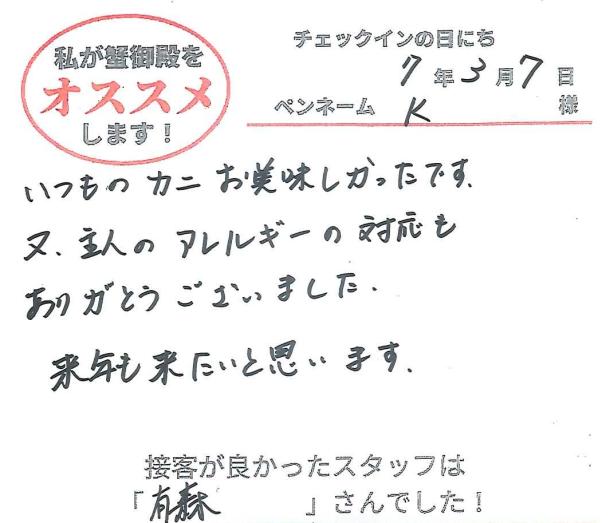 私が蟹御殿を
オススメ
します！
チェックインの日にち
7年3月7日
ペンネーム K 様
いつものカニお美味しかったです.
又、主人のアレルギーの対応も
ありがとうございました.
来年も来たいと思います.
接客が良かったスタッフは
「有森 」さんでした！